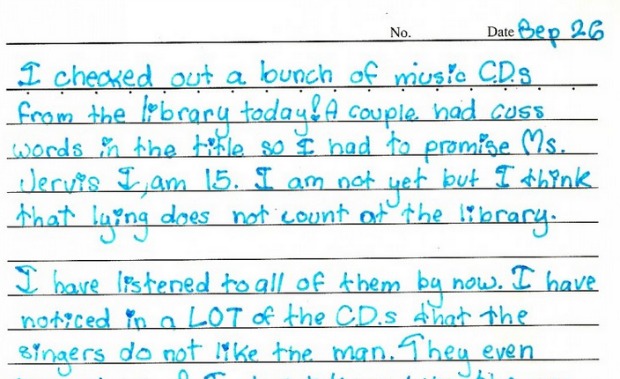 No. Date Sep 26
I checked out a bunch of music C.D.s
from the library today! A couple had cuss
words in the title so I had to promise Ms.
Jervis I am 15. I am not yet but I think
that lying does not count at the library.
I have listened to all of them by now. I have
noticed in a LOT of the C.D.s that the
singers do not like the man. They even